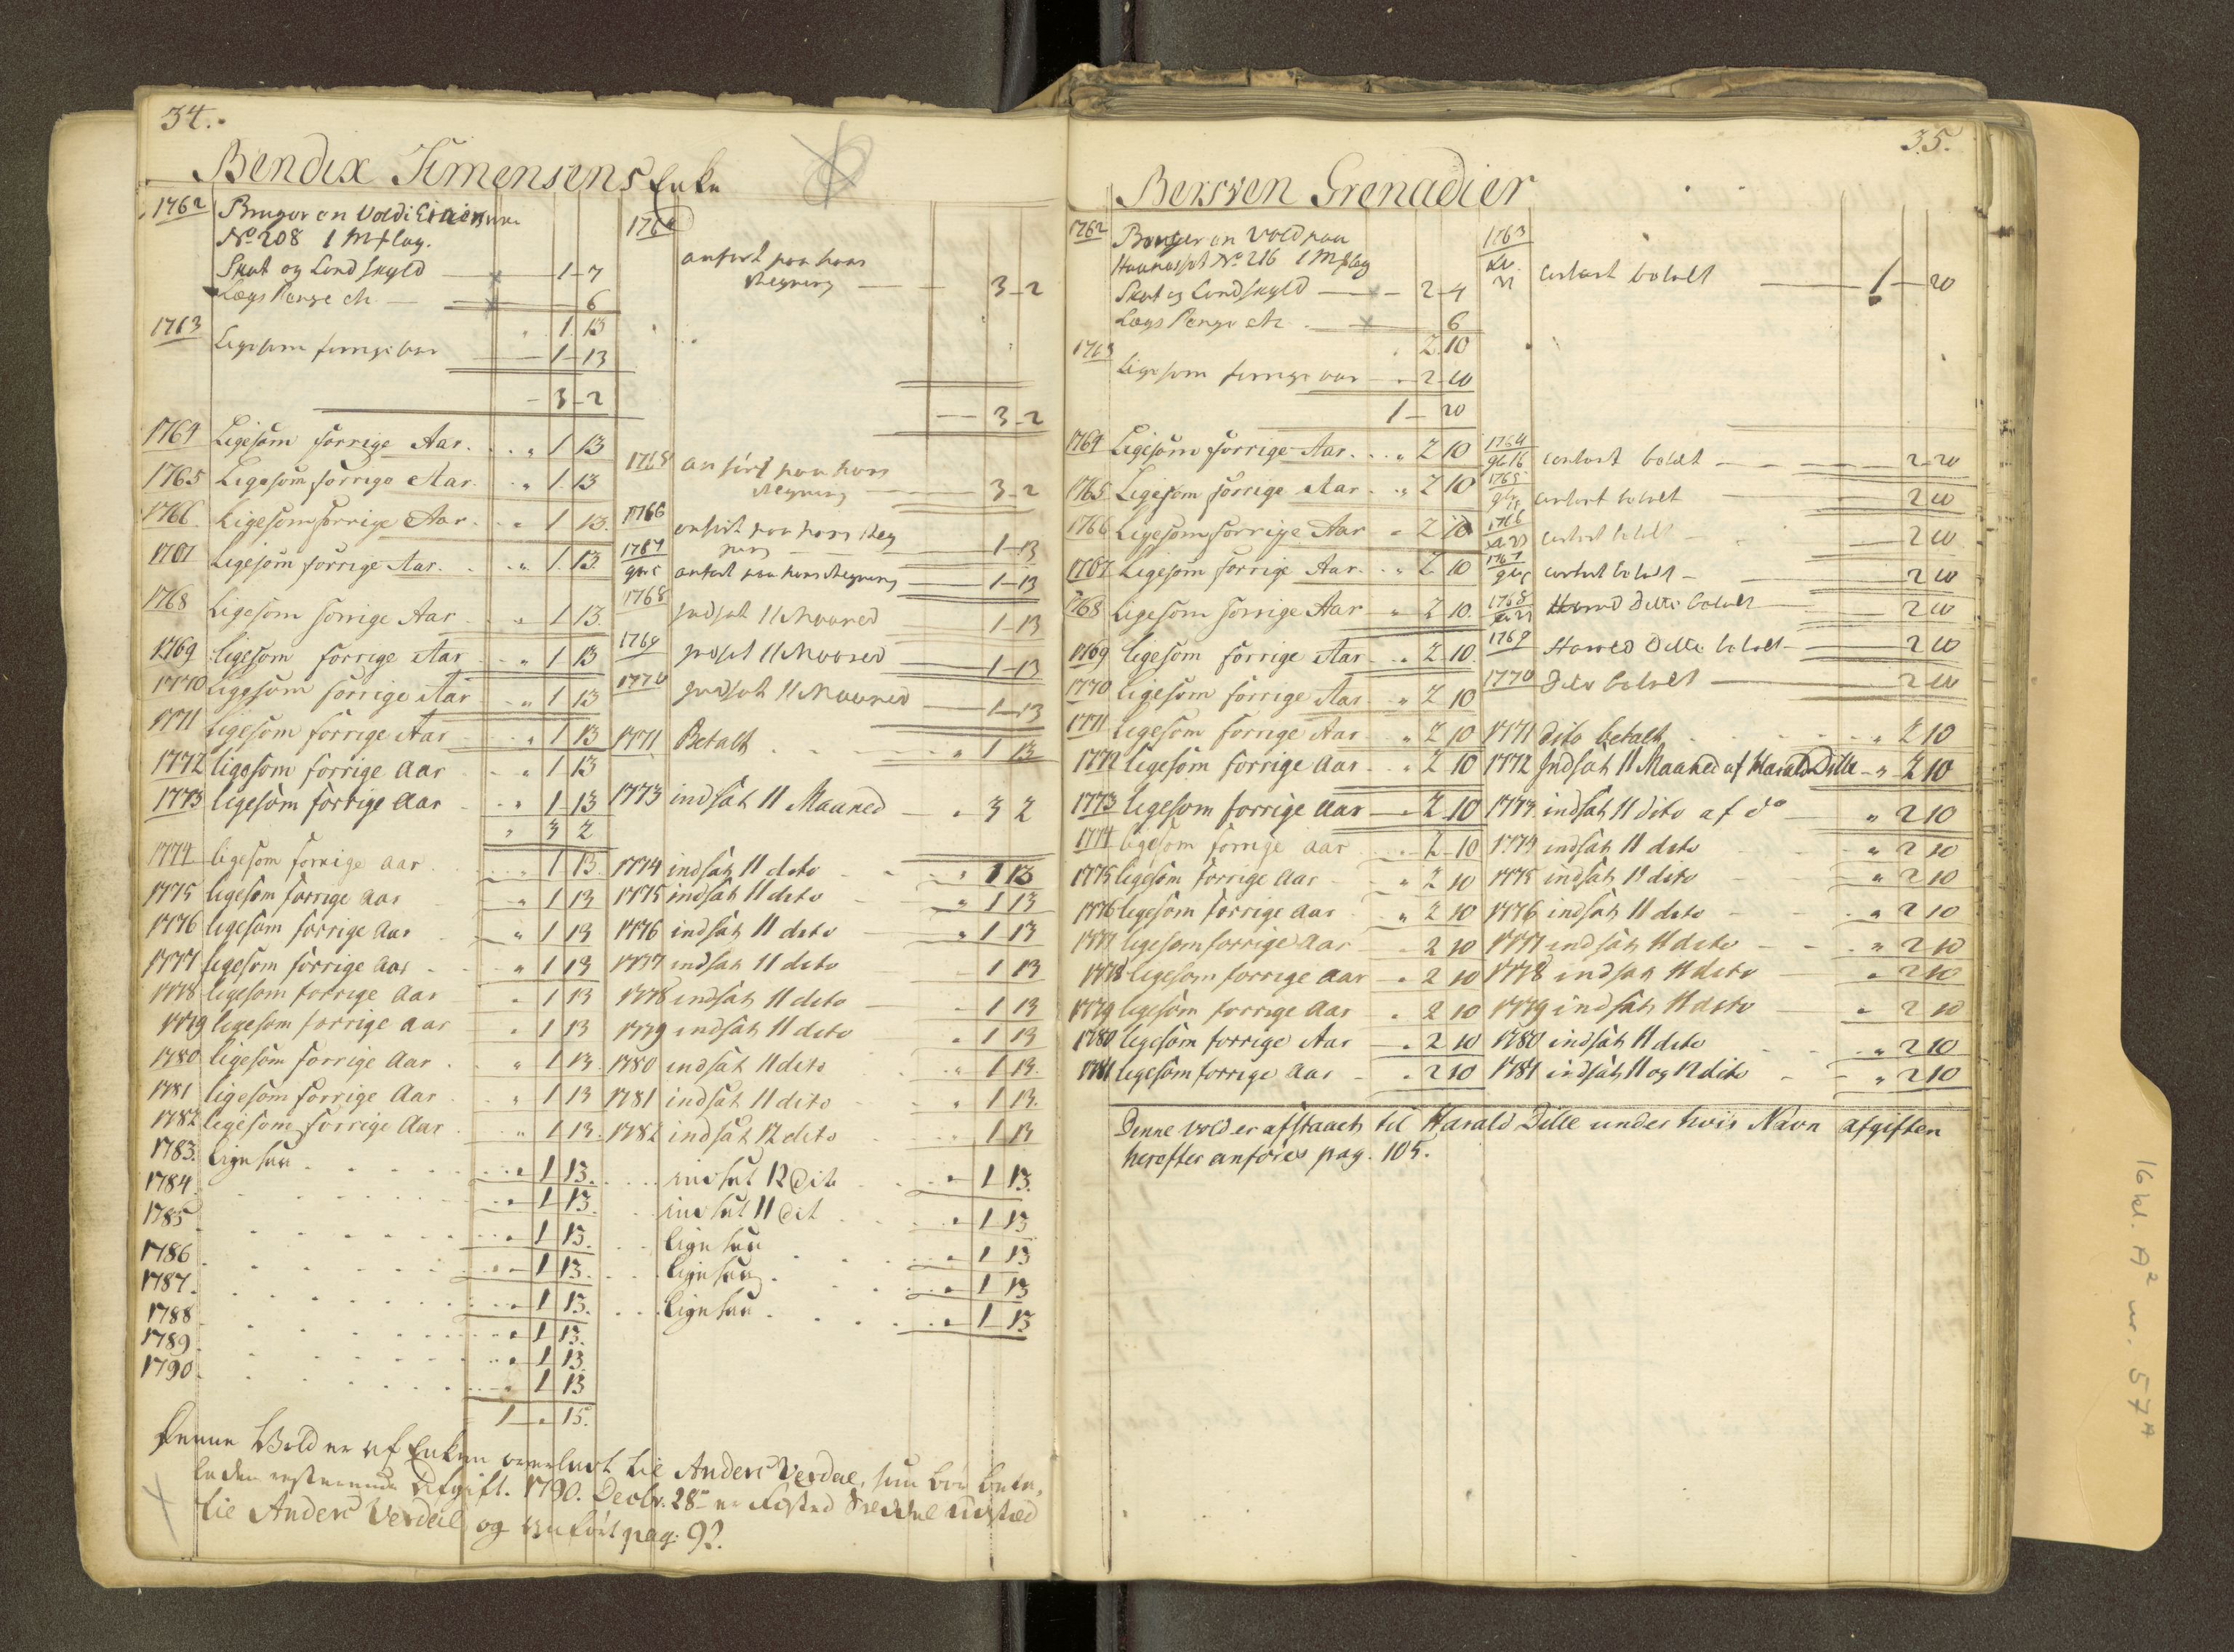 34.
Bendix Simensens Enke
1762 Bruger en Vold i
No 208 1 Mæhlag.
Skat og Landskyld 1 - 7
Lægs Penge etc 6
1 13
1763 Ligesom forrige aar 1 - 13
3 - 2
1764 Ligesom forrige Aar. " 1 13
1765 Ligesom forrige Aar. " 1 13
1766. Ligesom forrige Aar. " 1 13.
1767 Ligesom forrige Aar. " 1 13.
1768 Ligesom forrige Aar " 1 13.
1769 ligesom forrige Aar " 1 13
1770 ligesom forrige Aar " 1 13
1771 ligesom forrige Aar " 1 13
1772 ligesom forrige Aar " 1 13
1773 ligesom forrige Aar " 1 13
" 3 2
1774 ligesom forrige aar " 1 13.
1775 ligesom forrige Aar " 1 13
1776 ligesom forrige Aar " 1 13
1777 ligesom forrige Aar " 1 13
1778 ligesom forrige Aar " 1 13
1779 ligesom forrige Aar " 1 13
1780 ligesom forrige Aar " 1 13.
1781 ligesom forrige Aar " 1 13
1782 ligesom forrige Aar " 1 13.
1783. ligesaa " 1 13.
1784. " 1 13.
1785 " 1 13.
1786 " 1 13.
1787. " 1 13.
1788 " 1 13.
1789. " 1 13.
1790 " 1 13
1 " 15.
anført paa hans
Regning 3 - 2
3 - 2
anført paa hans
Regning 3 - 2
1766 anført paa hans Reg
ning 1 - 13
1767 anført paa hans Regning 1 - 13
1768 indsat 11 Maaned 1 - 13
1769 indsat 11 Maaned 1 - 13
1770 indsat 11 Maaned 1 - 13
1771 Betalt " 1 13
1773 indsat 11 Maaned " 3 2
1774 indsat 11 dito " 1 13
1775 indsat 11 dito " 1 13
1776 indsat 11 dito " 1 13
1777 indsat 11 dito 1 13
1778 indsat 11 dito 1 13
1779 indsat 11 dito " 1 13
1780 indsat 11 dito " 1 13.
1781 indsat 11 dito " 1 13.
1782 indsat 12 dito " 1 13
indsat 12 Dit " 1 13.
indsat 11 Dit " 1 13
ligesaa " 1 13
ligesaa " 1 13
ligesaa " 1 13
Denne Vold er af Enken overladt til Anders Verdal, som bør beta-
le den resterende Afgift. 1790. Decbr. 28 er Fæsted Seddel udstæd
til Anders Verdal og anført pag: 92.
35.
Bersven Grenadier
1762 Bruger en Vold paa
No 216 1 Mæhlag
Skat og Landskyld 2 - 4
Lægs Penge etc. 6
2 10
1763 Ligesom forrige aar 2 - 10
1 - 20
1764 Ligesom forrige Aar. " 2 10
1765 Ligesom forrige Aar " 2 10
1766 Ligesom forrige Aar " 2 10
1767 Ligesom forrige Aar. " 2 10
1768 Ligesom forrige Aar " 2 10.
1769 ligesom forrige Aar " 2 10.
1770 ligesom forrige Aar " 2 10
1771 ligesom forrige Aar " 2 10
1772 ligesom forrige Aar " 2 10
1773 ligesom forrige Aar 2 10
1774 ligesom forrige Aar 2 - 10
1775 ligesom forrige Aar " 2 10
1776 ligesom forrige Aar " 2 10
1777 ligesom forrige Aar 2 10
1778 ligesom forrige Aar " 2 10
1779 ligesom forrige Aar " 2 10
1780 ligesom forrige Aar " 2 10
1781 ligesom forrige Aar " 2 10
1763 contant betalt 1 - 20
1764 contant betalt 2 - 20
1765 contant betalt 2 10
1766 contant betalt 2 10
1767 contant betalt 2 10
1768 Dille betalt 2 10
1769 Harald Dille betalt 2 10
1770 Dito betalt 2 10
1771 dito betalt " 2 10
1772 Indsat 11 Maaned af Harald Dille " 2 10
1773 indsat 11 dito af do " 2 10
1774 indsat 11 dito " 2 10
1775 indsat 11 dito " 2 10
1776 indsat 11 dito " 2 10
1777 indsat 11 dito " 2 10
1778 indsat 11 dito " 2 10
1779 indsat 11 dito " 2 10
1780 indsat 11 dito " 2 10
1781 indsat 11 og 12 dito " 2 10
Denne Vold er afstaaet til Harald Dille under hvis Navn afgiften
herefter anføres pag. 105.
16 kl. A2 nr. 57A